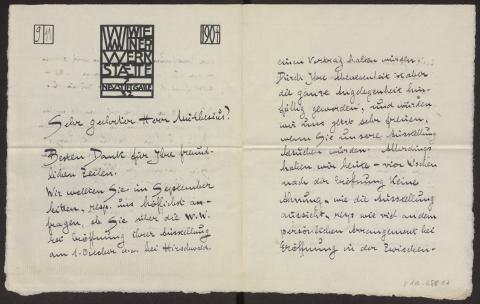 9 11
WIE
NER
WERK
STÄTTE
NEUSTIFTGASSE
32
1904
Sehr geehrter Herr Muthesius!
Besten Dank für Ihre freund-
lichen Zeilen.
Wir wollten Sie im September
bitten, resp. uns höflichst an-
fragen, ob Sie über die W.W.
bei Eröffnung ihrer Ausstellung
am 1. October a.c. bei Hirschwald
einen Vortrag halten würden.
Durch Ihre Abwesenheit ist aber
die ganze Angelegenheit hin-
fällig geworden; und würden
wir uns sehr freuen,
wenn Sie unsere Ausstellung
besuchen würden. Allerdings
haben wir heute – vier Wochen
nach der Eröffnung keine
Ahnung, wie die Ausstellung
aussieht, resp. wie viel an dem
persönlichen Arrangement bei
Eröffnung in der Zwischen-